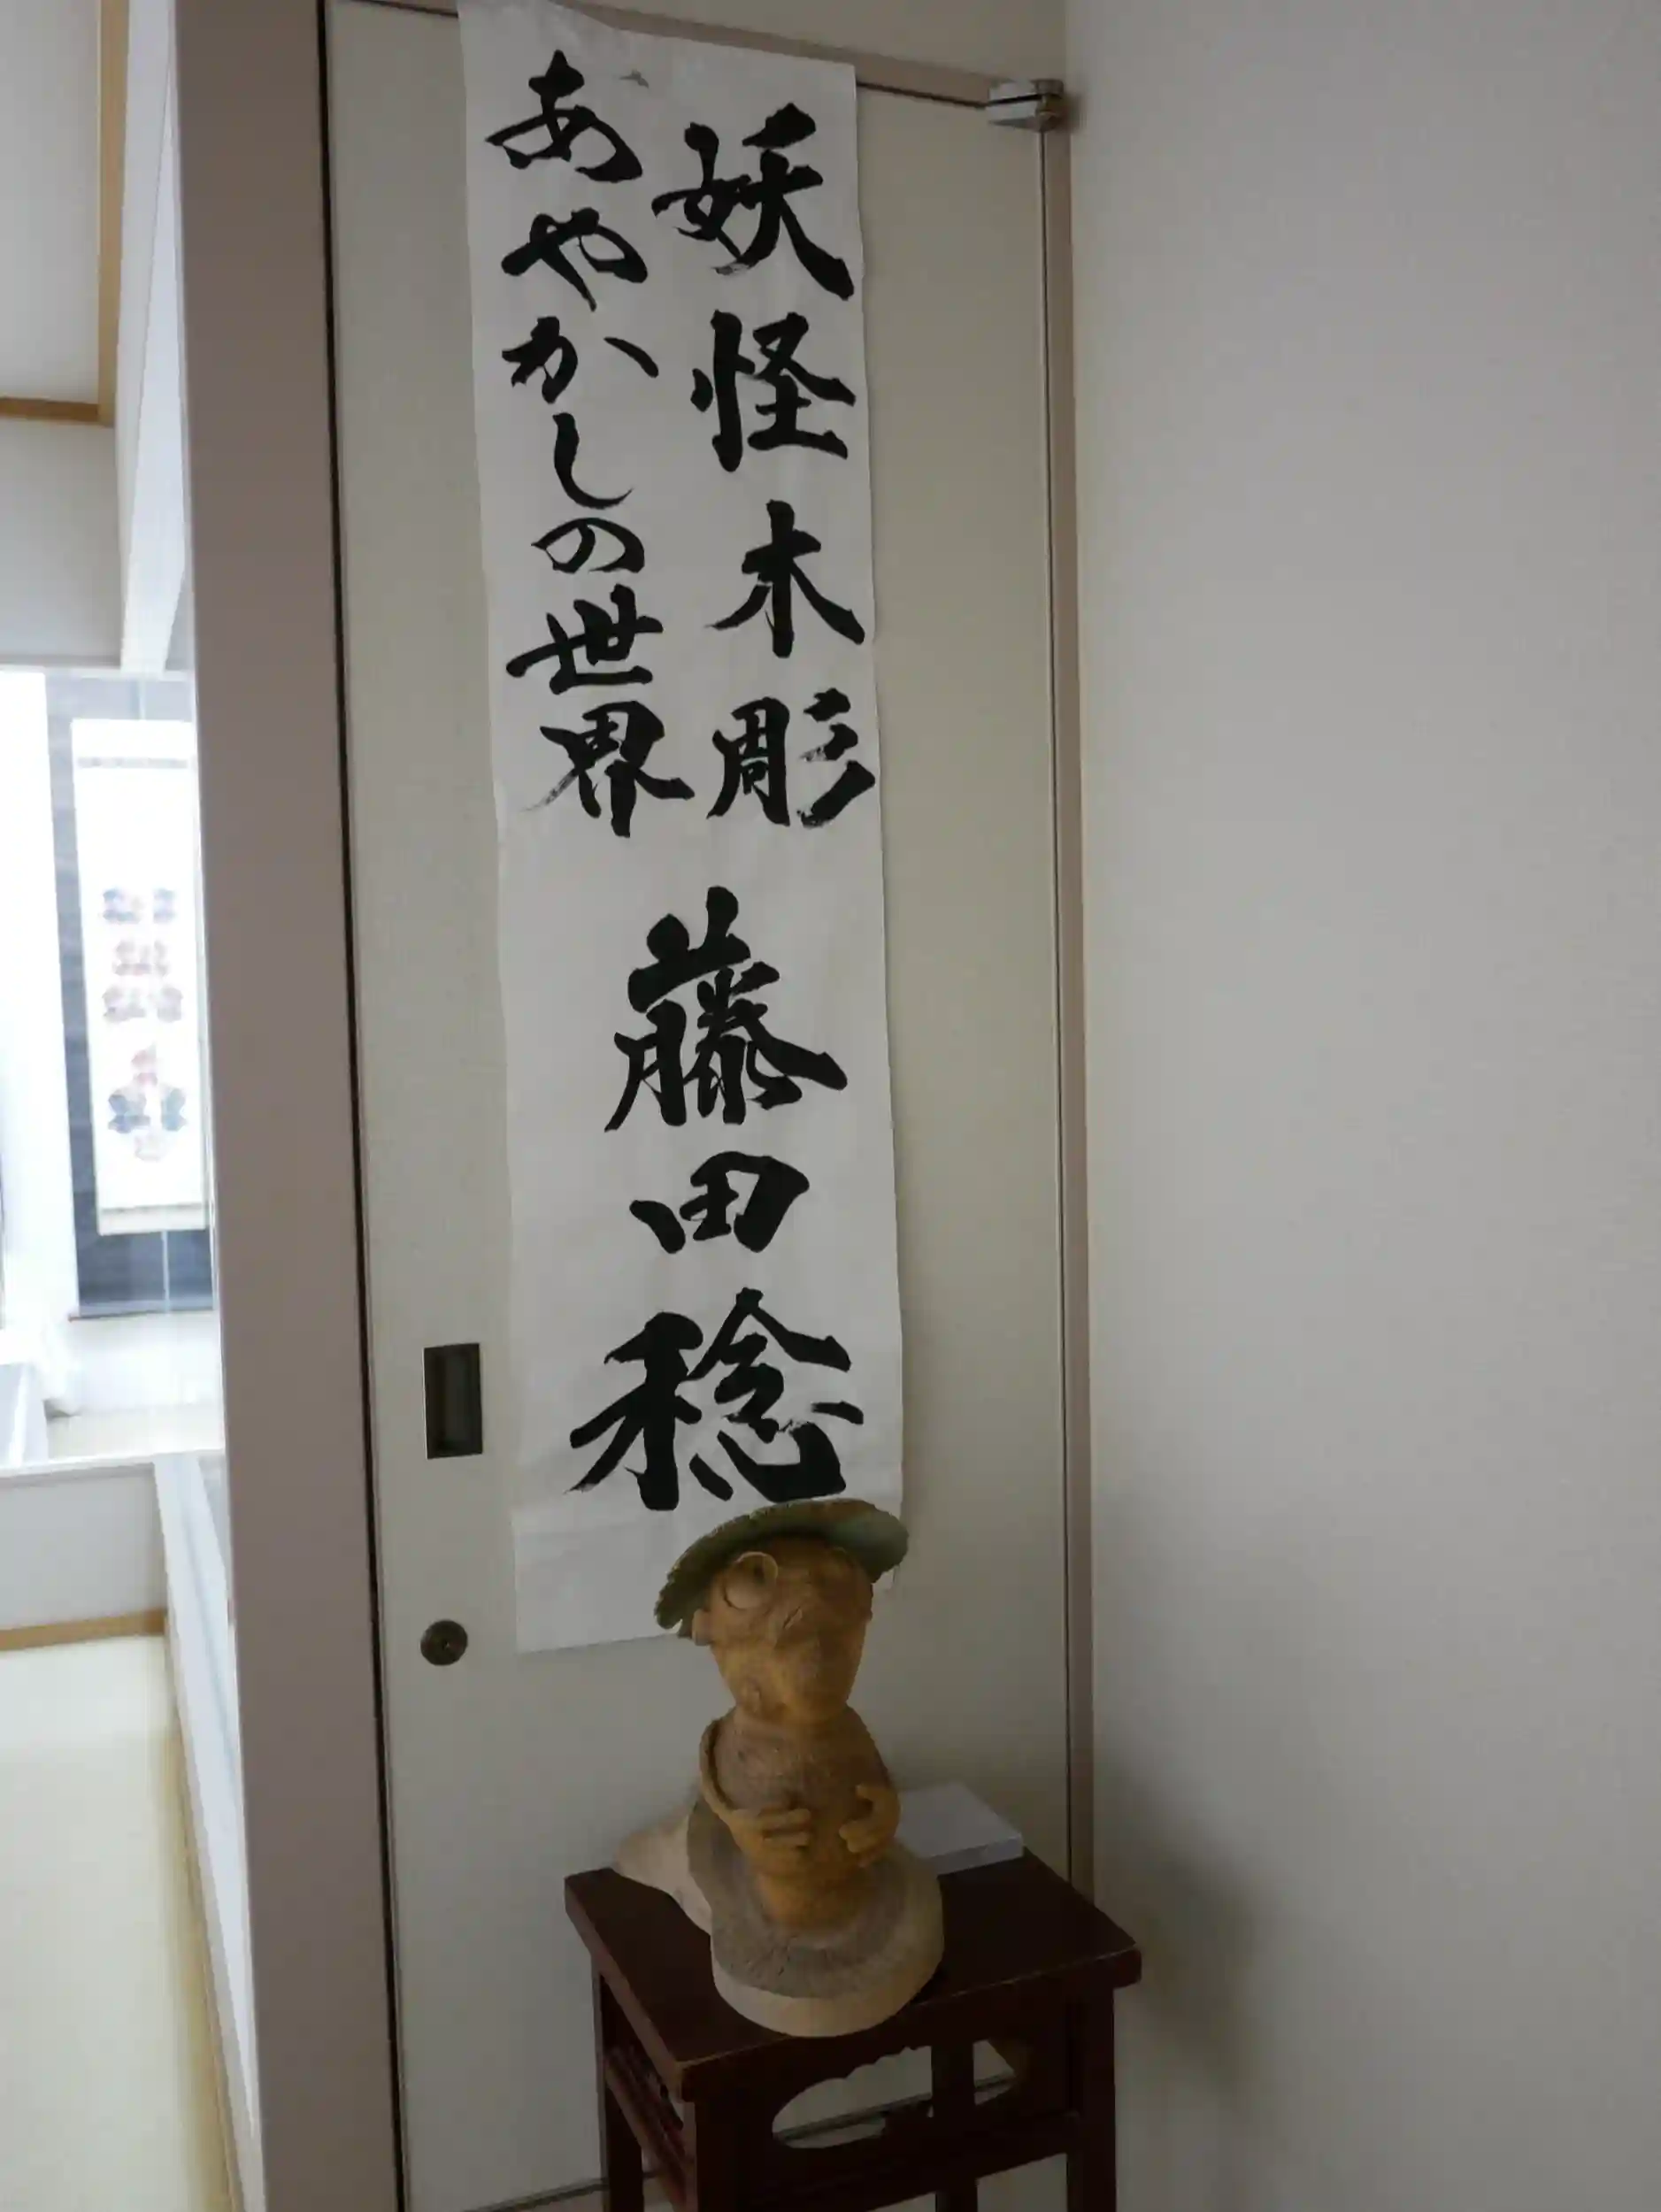 妖怪木彫
あやかしの世界
藤田稔